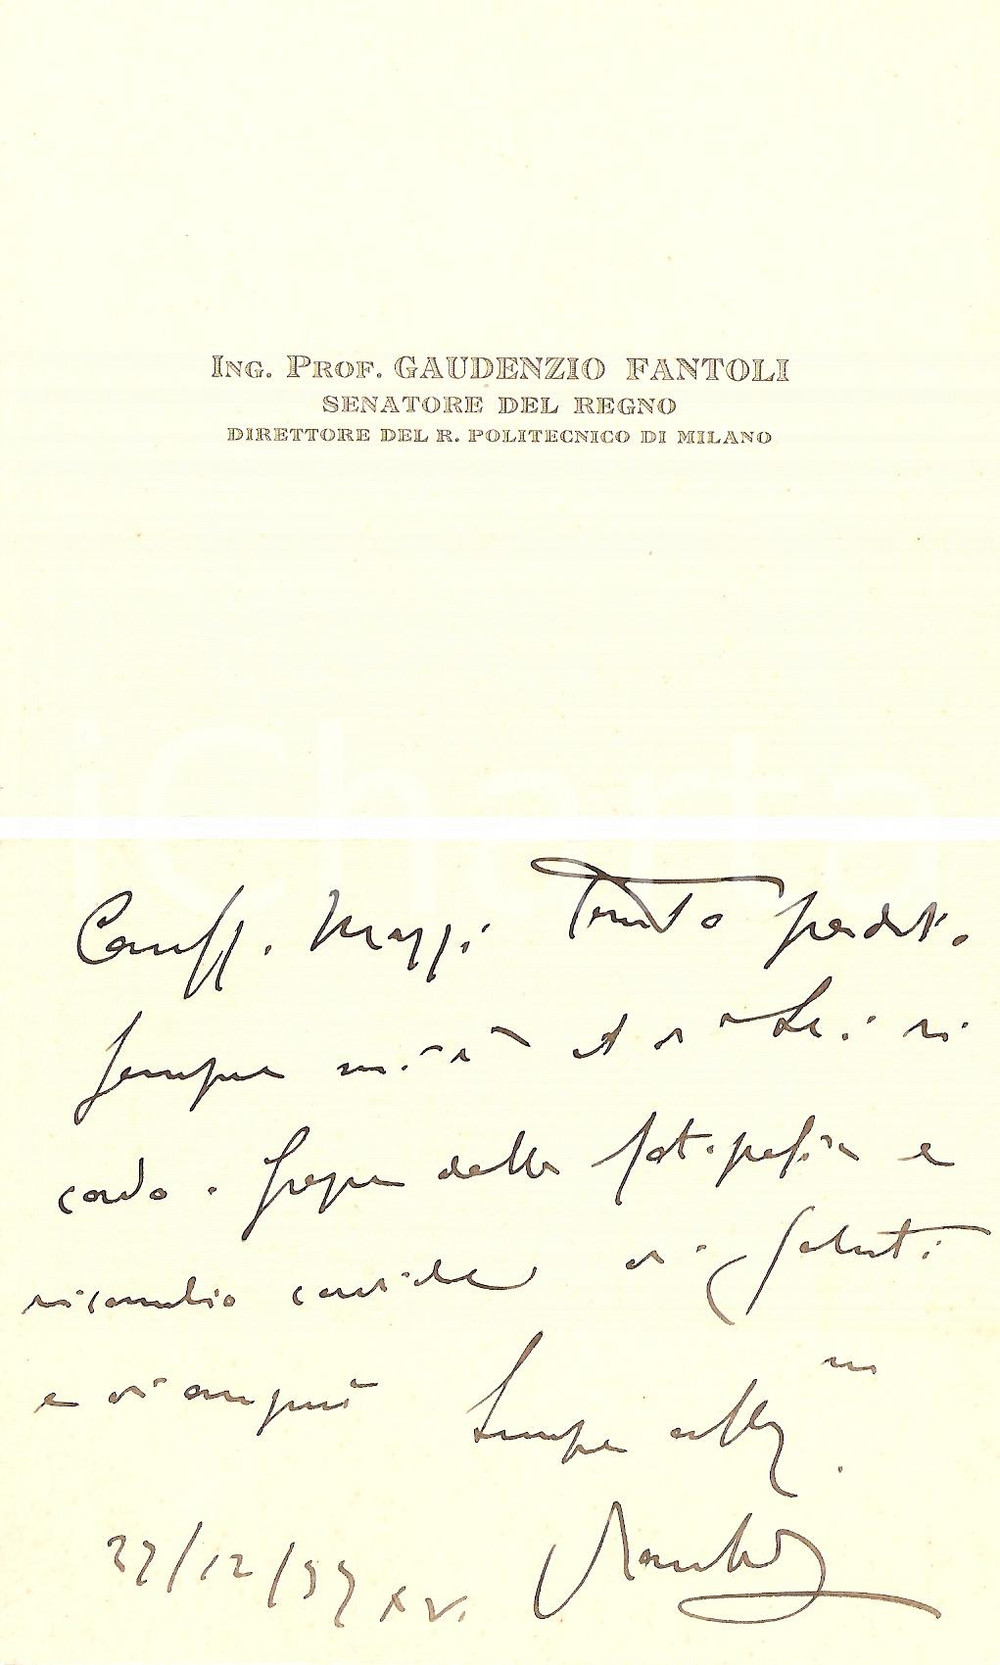 ING. PROF. GAUDENZIO FANTOLI
SENATORE DEL REGNO
DIRETTORE DEL R. POLITECNICO DI MILANO
iCharta
Mazzi
Sempre di Lei ri
cordo. Grazie della fotografia e
ricambio cordiale di saluti
e di auguri Sempre aff mo
27/12/37 XV.